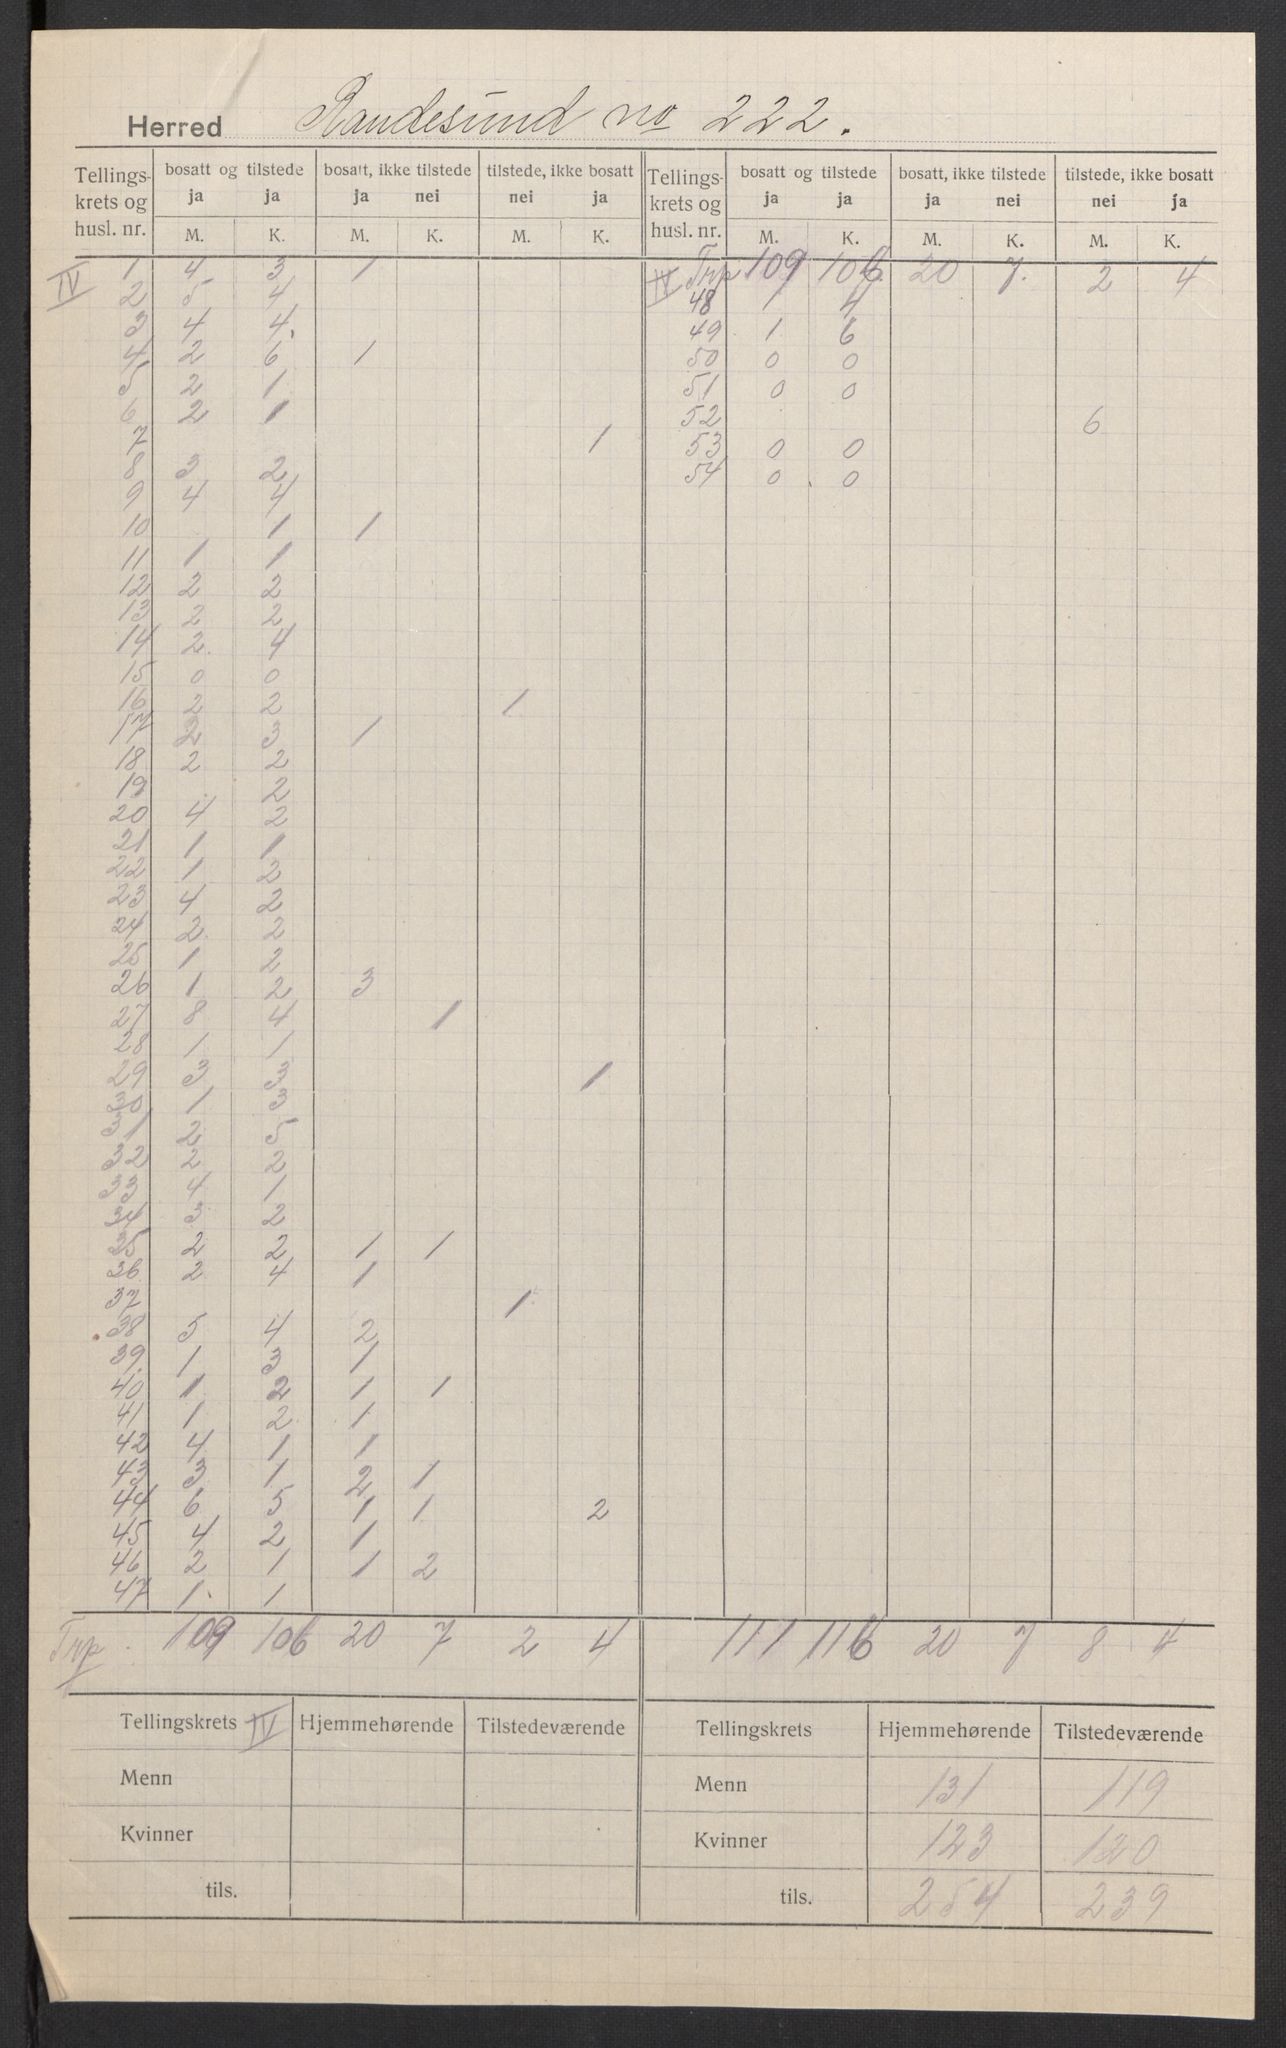 Herred Randesund no 222.
Tellings- krets og husl. nr. | bosatt og tilstede | bosatt, ikke tilstede | tilstede, ikke bosatt | Tellings- krets og husl. nr. | bosatt og tilstede | bosatt, ikke tilstede | tilstede, ikke bosatt
ja ja | ja nei | nei ja | ja ja | ja nei | nei ja
M. K. | M. K. | M. K. | M. K. | M. K. | M. K.
IV 1 4 3 1 | IV Trp 109 106 20 7. 2 4
2 5 4 | 48 1 4
3 4 4 | 49 1 6
4 2 6 1 | 50 0 0
5 2 1 | 51 0 0
6 2 1 | 52 6
7 1 | 53 0 0
8 3 2 | 54 0 0
9 4 4
10 1 1
11 1 1
12 2 2
13 2 2
14 2 4
15 0 0
16 2 2 1
17 2 3 1
18 2 2
19 2
20 4 2
21 1 1
22 1 2
23 4 2
24 2 2
25 1 2
26 1 2 3
27 8 4 1
28 1 1
29 3 3 1
30 1 3
31 2 5
32 2 2
33 4 1
34 3 2
35 2 2 1 1
36 2 4 1
37 1
38 5 4 2
39 1 3 1
40 1 2 1 1
41 1 2 1
42 4 1 1
43 3 1 2 1
44 6 5 1 1 2
45 4 2 1
46 2 1 1 2
47 1 1
Trp. 109 106 20 7 2 4 | 111 116 20 7 8 4
Tellingskrets IV | Hjemmehørende | Tilstedeværende | Tellingskrets | Hjemmehørende | Tilstedeværende
Menn | Menn 131 119
Kvinner | Kvinner 123 120
tils. | tils. 254 239